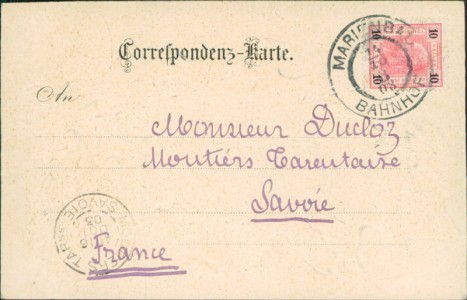 Correspondenz-Karte.
MARIENBAD
BAHNHOF
10 10
10 10
An
Monsieur Ducloz
Moutiérs Tarentaise
Savoie
France
SAVOIE
03